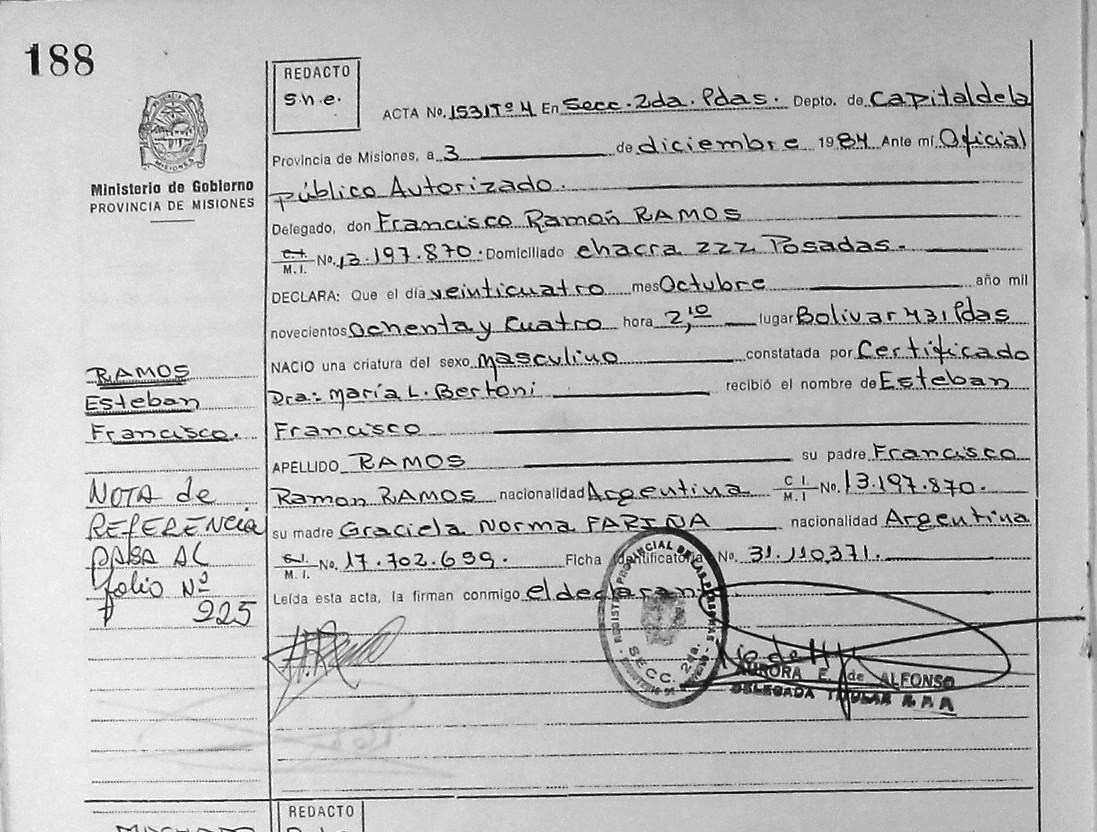 188
REDACTO
s.n.e.
ACTA No. 1531 Tº 4 En Secc. 2da. Pdas. Depto. de Capital de la
Provincia de Misiones, a 3 de diciembre 1984 Ante mí Oficial
público Autorizado.
Ministerio de Gobierno
PROVINCIA DE MISIONES
Delegado, don Francisco Ramon RAMOS
C.I. M.I. No. 13.197.870. Domiciliado chacra 222 Posadas.-
DECLARA: Que el día veinticuatro mes Octubre año mil
novecientos Ochenta y Cuatro hora 2,10 lugar Bolivar 431 Pdas
NACIO una criatura del sexo masculino constatada por Certificado
Dra: María L. Bertoni recibió el nombre de Esteban
Francisco
APELLIDO RAMOS su padre Francisco
Ramon RAMOS nacionalidad Argentina C I. M.I No. 13.197.870.
su madre Graciela Norma FARIÑA nacionalidad Argentina
C.I. M.I. No. 17.702.659. Ficha Identificatoria No. 31.110,371.
Leída esta acta, la firman conmigo el declarante.
RAMOS
Esteban
Francisco.
NOTA de
REFERENCIA
PASA AL
folio Nº
225
REGISTRO PROVINCIAL DE LAS PERSONAS
SECC. 2da.
AURORA E. de ALFONSO
DELEGADA TITULAR
REDACTO